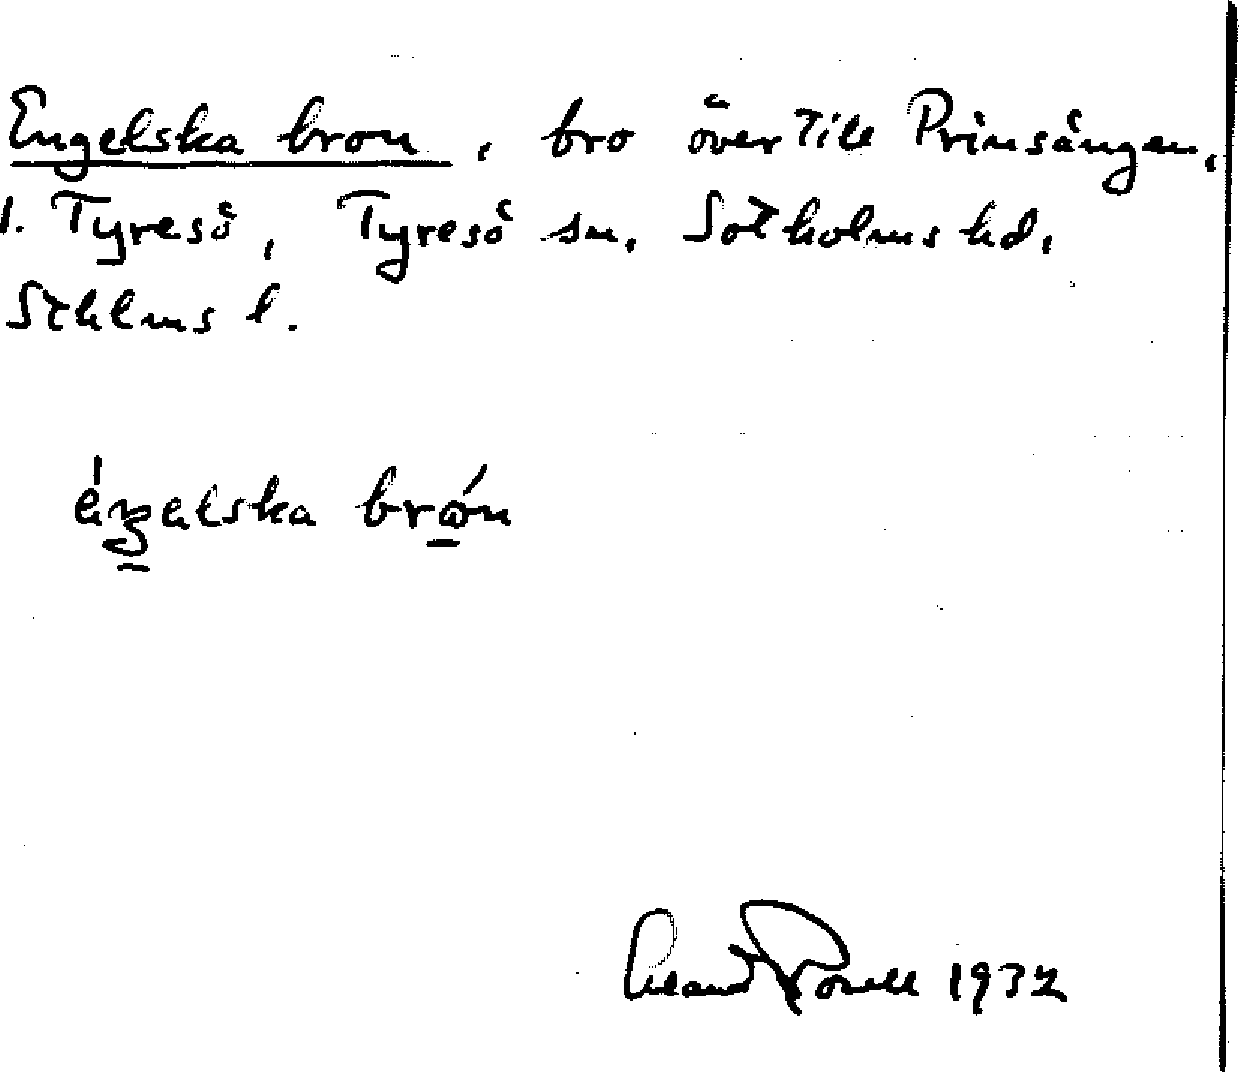 Engelska bron, bro över till Prinsängen,
1. Tyresö, Tyresö sn, Sotholms hd,
Sthlms l.
brón
1932